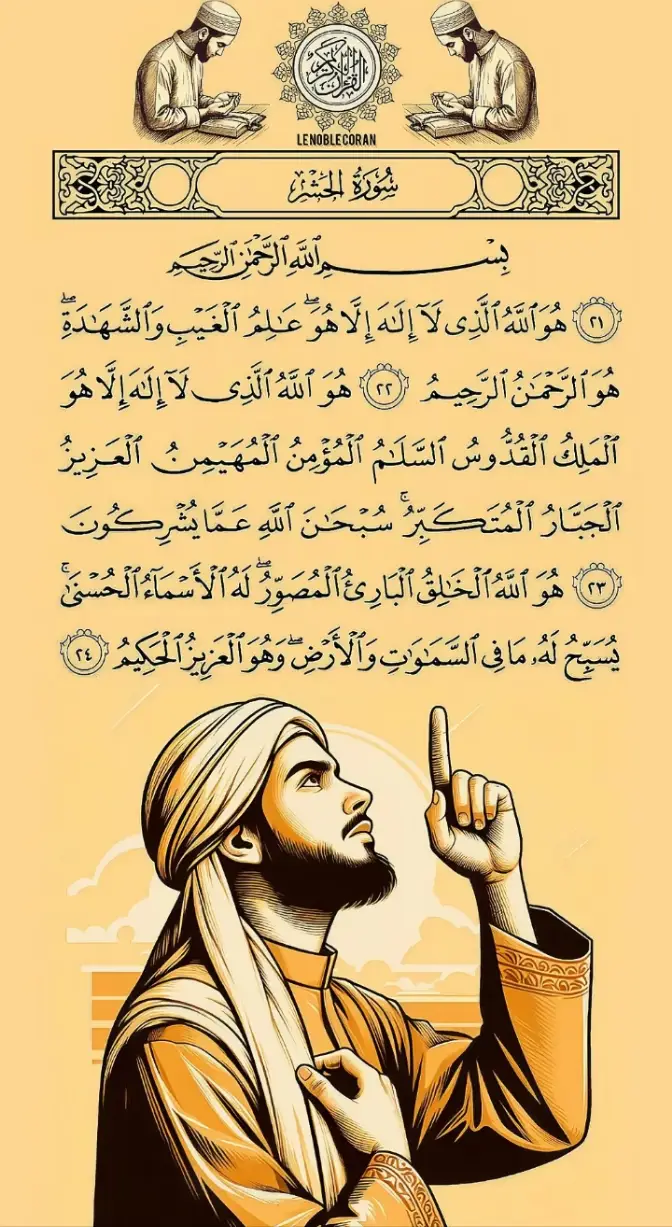 القرآن الكريم
LENOBLECORAN
سُورَةُ الحَشْرِ
بِسْمِ ٱللَّهِ ٱلرَّحْمَٰنِ ٱلرَّحِيمِ
٢١ هُوَ ٱللَّهُ ٱلَّذِى لَآ إِلَٰهَ إِلَّا هُوَۖ عَٰلِمُ ٱلْغَيْبِ وَٱلشَّهَٰدَةِۖ
هُوَ ٱلرَّحْمَٰنُ ٱلرَّحِيمُ ٢٢ هُوَ ٱللَّهُ ٱلَّذِى لَآ إِلَٰهَ إِلَّا هُوَ
ٱلْمَلِكُ ٱلْقُدُّوسُ ٱلسَّلَٰمُ ٱلْمُؤْمِنُ ٱلْمُهَيْمِنُ ٱلْعَزِيزُ
ٱلْجَبَّارُ ٱلْمُتَكَبِّرُۚ سُبْحَٰنَ ٱللَّهِ عَمَّا يُشْرِكُونَ
٢٣ هُوَ ٱللَّهُ ٱلْخَٰلِقُ ٱلْبَارِئُ ٱلْمُصَوِّرُۖ لَهُ ٱلْأَسْمَآءُ ٱلْحُسْنَىٰۚ
يُسَبِّحُ لَهُۥ مَا فِى ٱلسَّمَٰوَٰتِ وَٱلْأَرْضِۖ وَهُوَ ٱلْعَزِيزُ ٱلْحَكِيمُ ٢٤